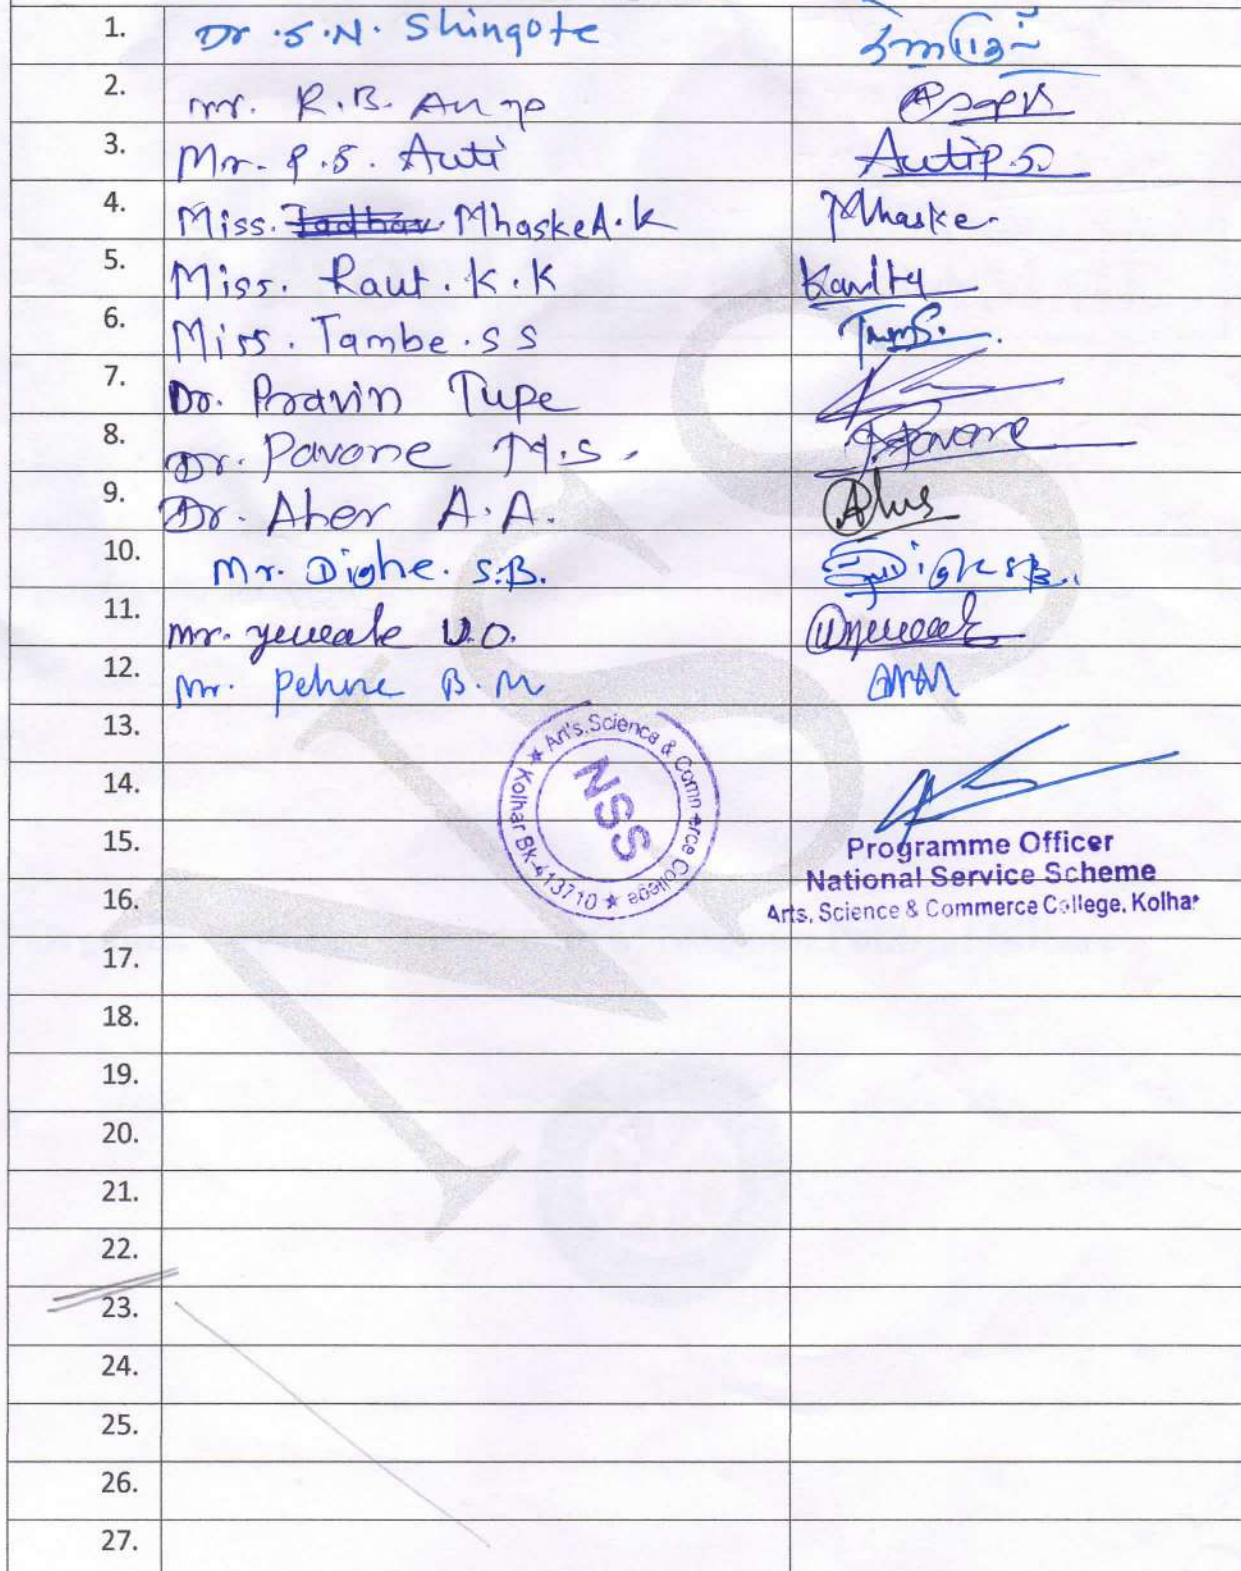 1. Dr. S.N. Shingote
2. Mr. R.B.
3. Mr. P.S. Auti Auti P.S
4. Miss. Jadhav Mhaske A.K Mhaske
5. Miss. Raut. K.K Kavita
6. Miss. Tambe. S S
7. Dr. Pravin Tupe
8. Dr. Pavane M.S. Pavane
9. Dr. Aher A.A.
10. Mr. Dighe. S.B. Dighe S.B.
11. Mr. Yeweale V.O.
12. Mr. B.M
13.
14.
15.
16.
17.
18.
19.
20.
21.
22.
23.
24.
25.
26.
27.
Art's. Science & Commerce College ★ Kolhar BK-413710 ★
NSS
Programme Officer
National Service Scheme
Arts, Science & Commerce College, Kolhar
NSS